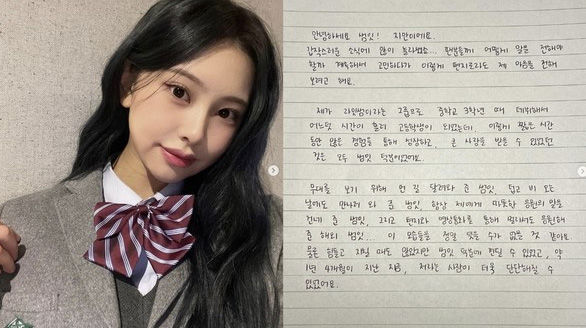 안녕하세요 범잇! 지안이에요.
갑작스러운 소식에 많이 놀라셨죠... 팬분들께 어떻게 말을 전해야
할까 계속해서 고민하다가 이렇게 편지로라도 제 마음을 전해
보려고 해요.
제가 라잇썸이라는 그룹으로 중학교 3학년 때 데뷔해서
어느덧 시간이 흘러 고등학생이 되었는데, 이렇게 짧은 시간
동안 많은 경험들을 통해 성장하고, 큰 사랑을 받을 수 있었던
것은 모두 범잇 덕분이었어요.
무대를 보기 위해 먼 길 달려와 준 범잇, 덥고 비 오는
날에도 만나러 와 준 범잇, 항상 저에게 따뜻한 응원의 말을
건네 준 범잇, 그리고 편지와 영상통화를 통해 멀리서도 응원해
준 해외 범잇... 이 모습들을 정말 잊을 수가 없을 것 같아요.
물론 힘들고 지칠 때도 있었지만 범잇 덕분에 견딜 수 있었고, 약
1년 4개월이 지난 지금, 저라는 사람이 더욱 단단해질 수
있었어요.